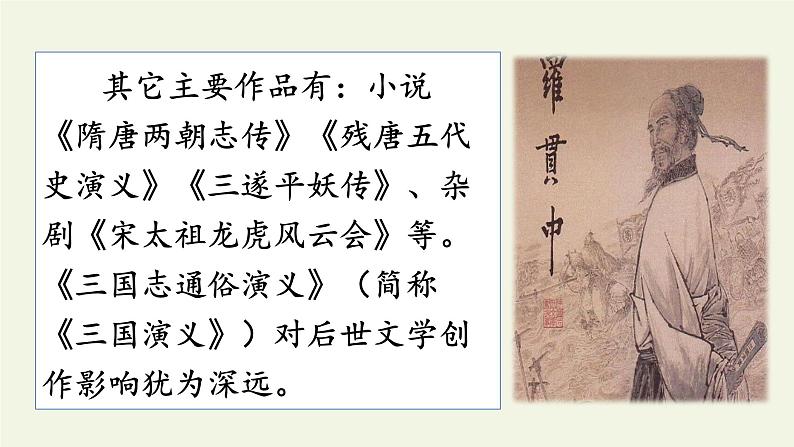 其它主要作品有：小说
《隋唐两朝志传》《残唐五代
史演义》《三遂平妖传》、杂
剧《宋太祖龙虎风云会》等。
《三国志通俗演义》（简称
《三国演义》）对后世文学创
作影响犹为深远。
羅贯中